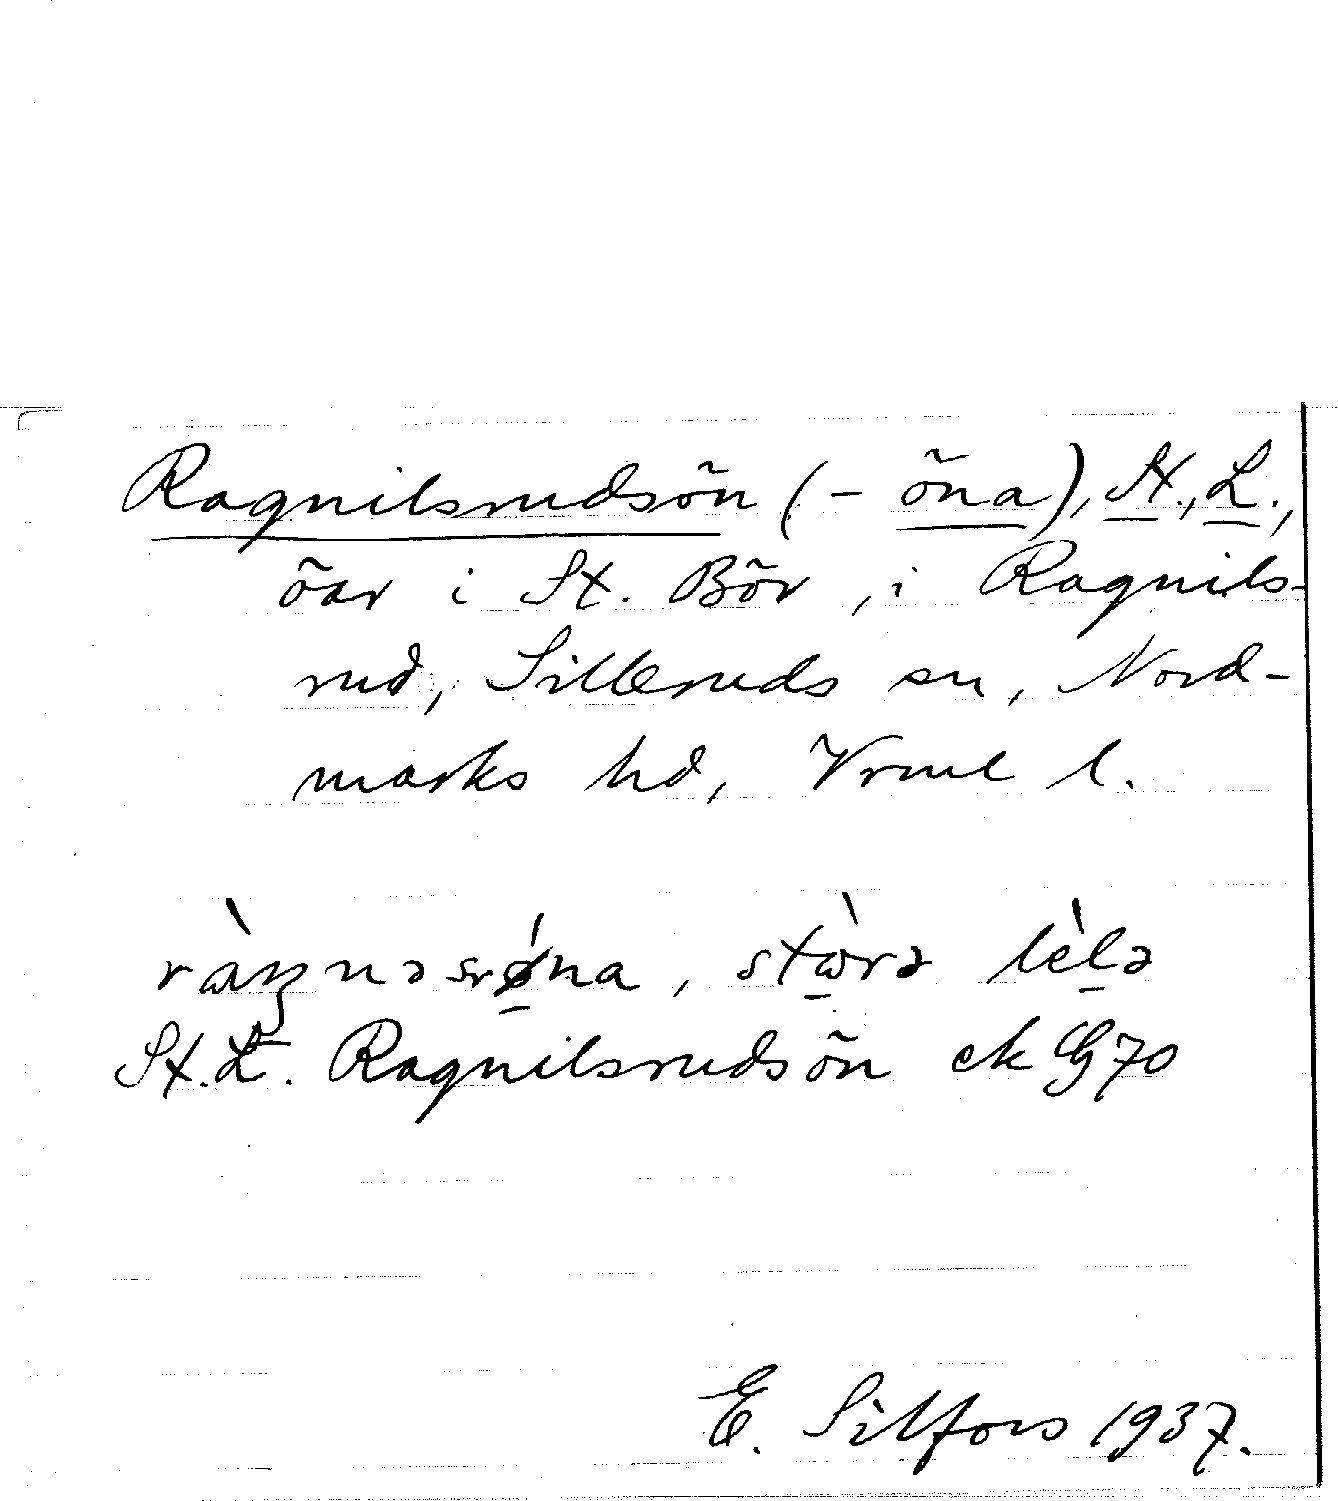 Ragnilsrudsön (-öna), St., L.,
öar i St. Bör, i Ragnils-
rud, Silleruds sn, Nord-
marks hd, Vrml l.
stò̱rə lè̱lə
St. L. Ragnilsrudsön ek G70
E. Silfors 1937.